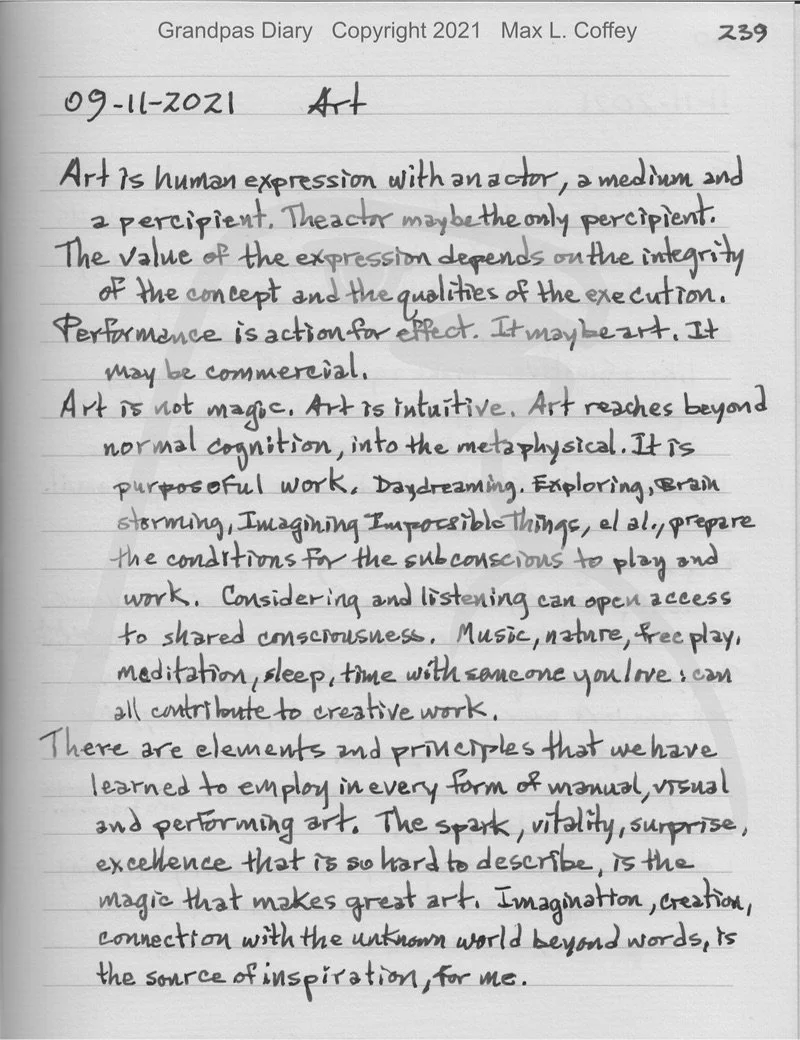 Grandpas Diary Copyright 2021 Max L. Coffey 239
09-11-2021 Art
Art is human expression with an actor, a medium and
a percipient. The actor may be the only percipient.
The value of the expression depends on the integrity
of the concept and the qualities of the execution.
Performance is action for effect. It may be art. It
may be commercial.
Art is not magic. Art is intuitive. Art reaches beyond
normal cognition, into the metaphysical. It is
purposeful work. Daydreaming. Exploring, Brain
storming, Imagining Impossible Things, el al., prepare
the conditions for the subconscious to play and
work. Considering and listening can open access
to shared consciousness. Music, nature, free play,
meditation, sleep, time with someone you love : can
all contribute to creative work.
There are elements and principles that we have
learned to employ in every form of manual, visual
and performing art. The spark, vitality, surprise,
excellence that is so hard to describe, is the
magic that makes great art. Imagination, creation,
connection with the unknown world beyond words, is
the source of inspiration, for me.